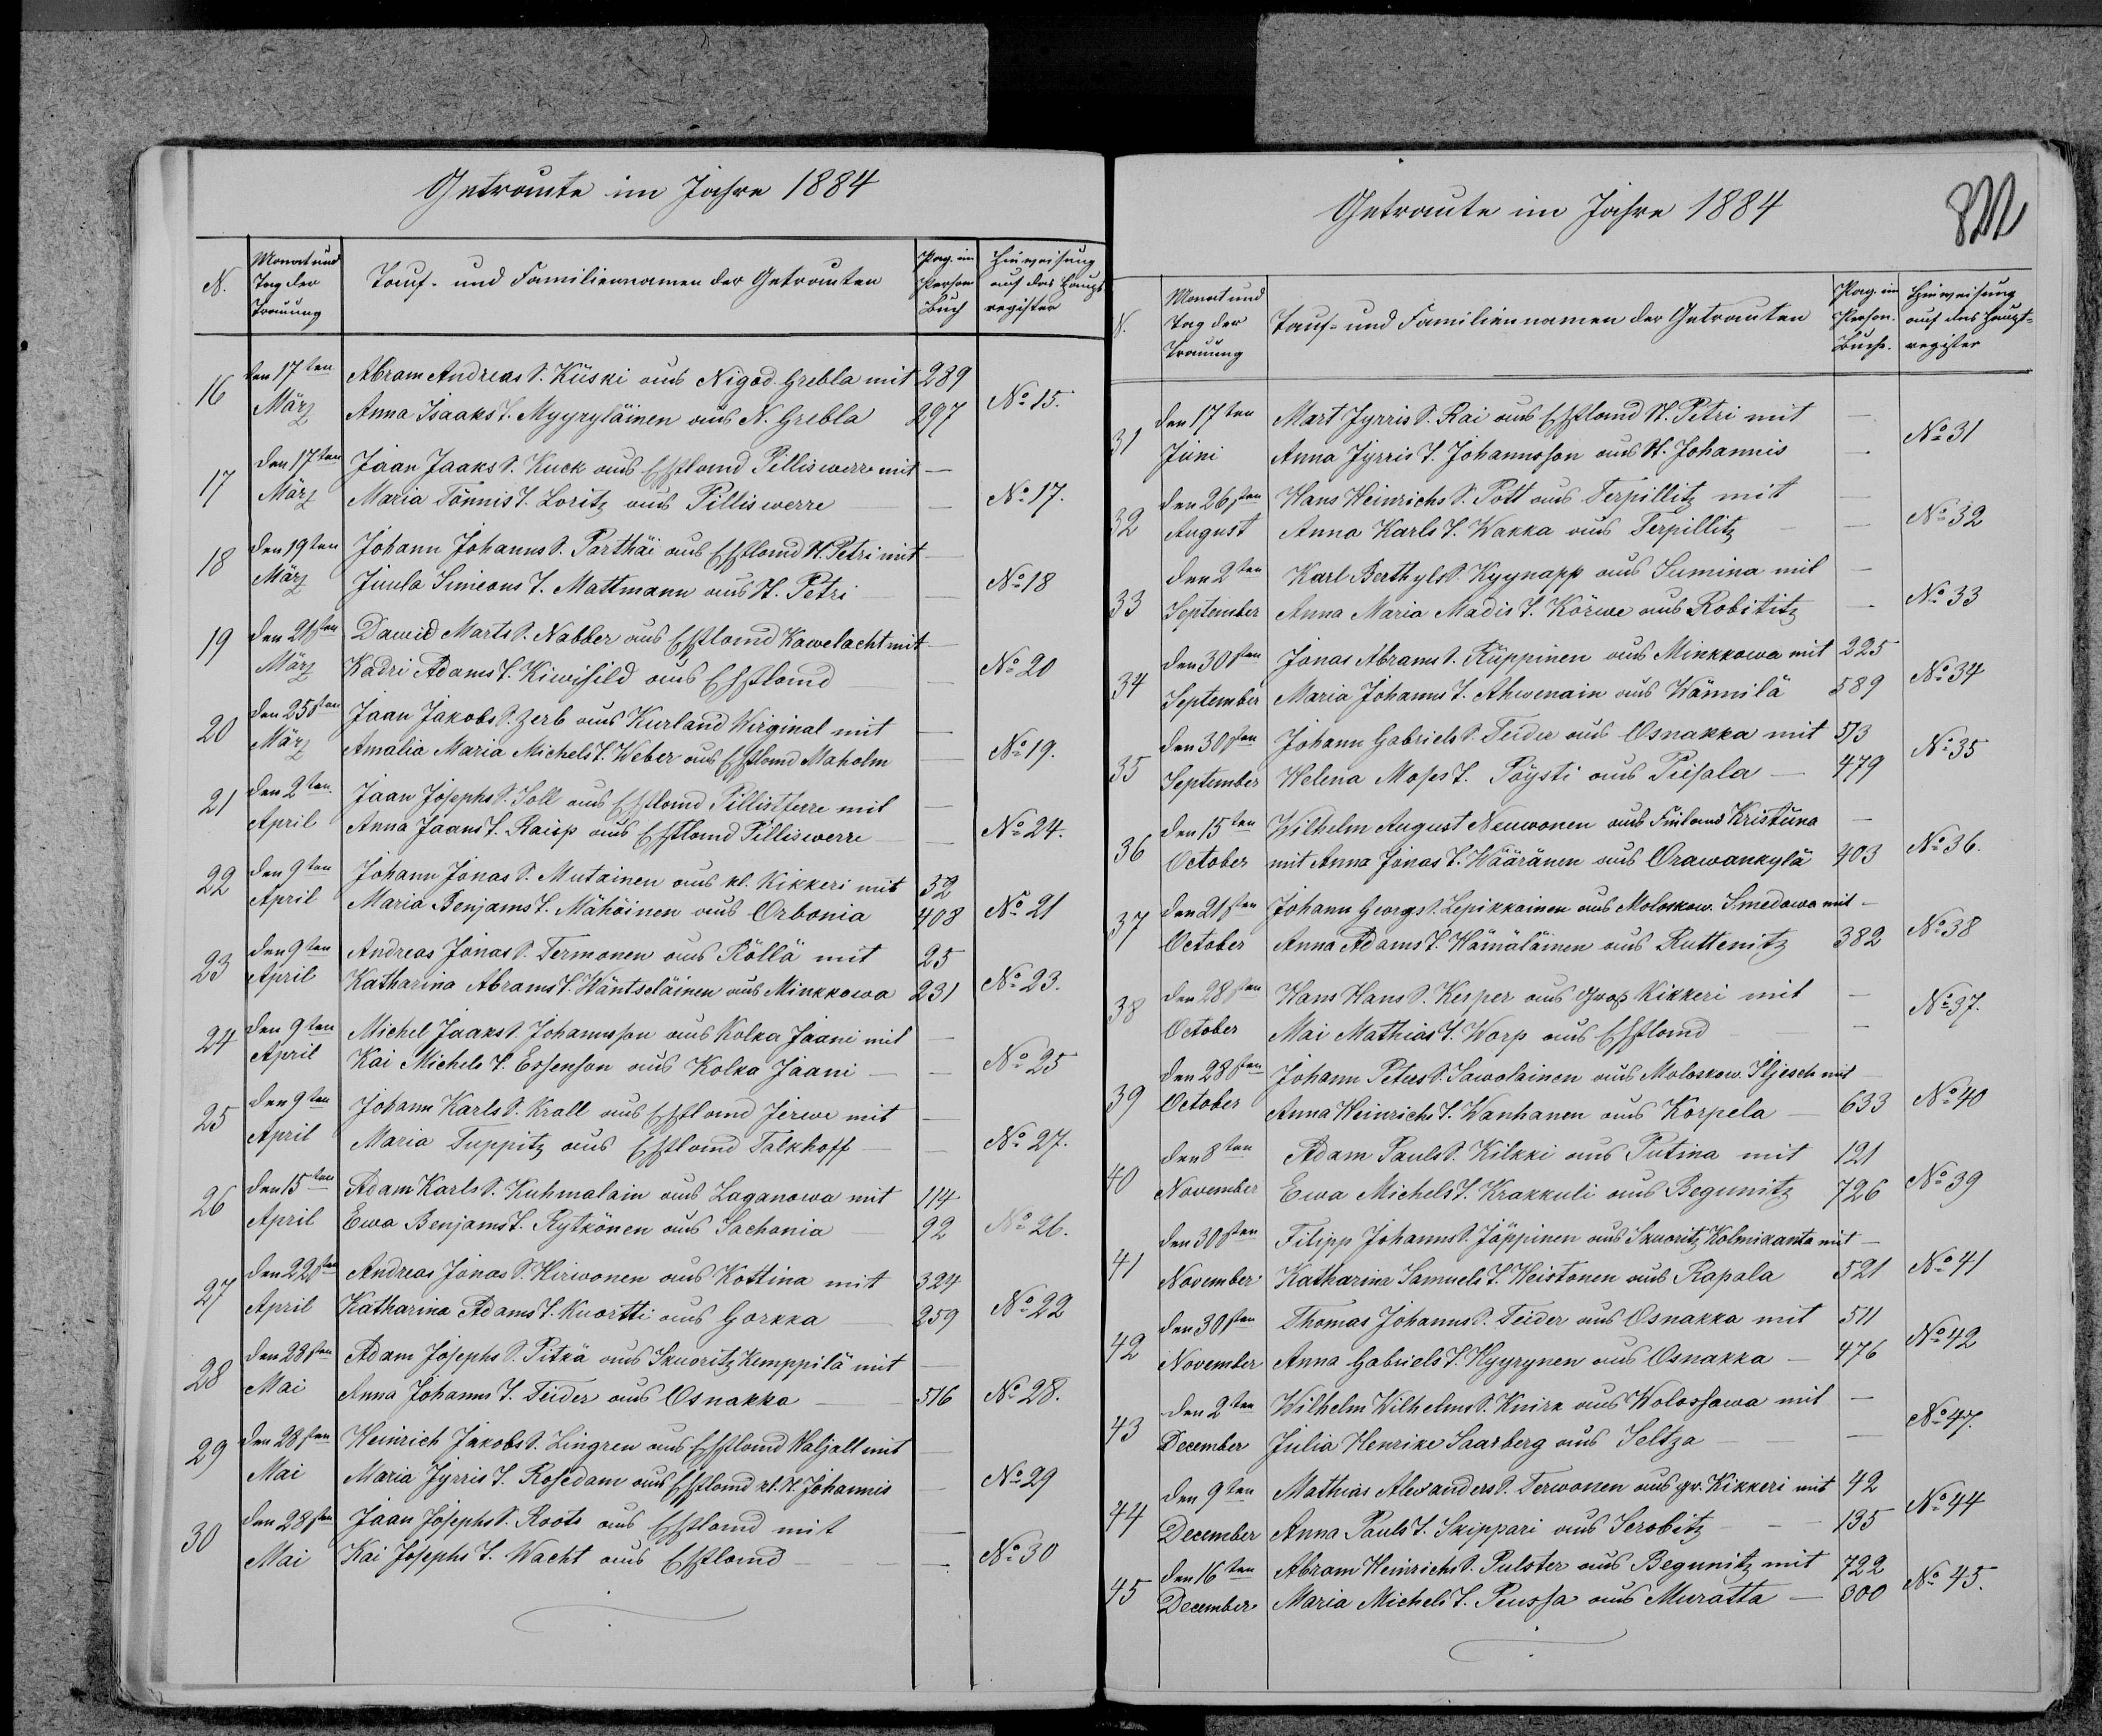 Getraute im Jahre 1884
N.
Monat und
Tag der
Trauung
Tauf- und Familiennamen der Getrauten
Pag. im
Person
Buch
Hinweisung
auf das Haupt-
register
16 den 17ten Abram Andreas S. Küski aus Nigod. Grebla mit 289
März Anna Isaaks T. Myyryläinen aus N. Grebla 297 No 15.
17 den 17ten Jaan Jaaks S. Kuck aus Esthland Pilliswerre mit —
März Maria Tönnis T. Loritz aus Pilliswerre — No 17.
18 den 19ten Johann Johanns S. Parthäi aus Esthland St. Petri mit —
März Juula Simeons T. Mattmann aus St. Petri — No 18
19 den 21sten Dawid Marts S. Nabber aus Esthland Kawelacht mit —
März Kadri Adams T. Kiwisild aus Esthland — No 20
20 den 25sten Jaan Jakobs S. Zerb aus Kurland Wirginal mit —
März Amalia Maria Michels T. Weber aus Esthland Maholm — No 19.
21 den 2ten Jaan Josephs S. Soll aus Esthland Pillistferre mit —
April Anna Jaans T. Raisp aus Esthland Pilliswerre — No 24.
22 den 9ten Johann Jonas S. Mutainen aus kl. Kikkeri mit 32
April Maria Benjams T. Mähöinen aus Orbonia 408 No 21
23 den 9ten Andreas Jonas S. Termonen aus Röllä mit 25
April Katharina Abrams T. Wäntseläinen aus Minkkowa 231 No 23.
24 den 9ten Michel Jaaks S. Johannson aus Kolka Jaani mit —
April Kai Michels T. Essenson aus Kolka Jaani — No 25
25 den 9ten Johann Karls S. Krall aus Esthland Jerwe mit —
April Maria Tuppitz aus Esthland Talkhoff — No 27.
26 den 15ten Adam Karls S. Kuhmalain aus Laganowa mit 114
April Ewa Benjams T. Rytkönen aus Sachonia 92 No 26.
27 den 22sten Andreas Jonas S. Hirwonen aus Kottina mit 324
April Katharina Adams T. Kuortti aus Gorkka 259 No 22
28 den 28sten Adam Josephs S. Pitkä aus Skuoritz Kemppilä mit —
Mai Anna Johanns T. Teider aus Osnakka 516 No 28.
29 den 28sten Heinrich Jakobs S. Lingren aus Esthland Haljall mit —
Mai Maria Jyrris T. Rosedam aus Esthland kl. St. Johannis — No 29
30 den 28sten Jaan Josephs S. Roots aus Esthland mit —
Mai Kai Josephs T. Wacht aus Esthland — No 30
Getraute im Jahre 1884
N.
Monat und
Tag der
Trauung
Tauf- und Familiennamen der Getrauten
Pag. im
Person.
Buche.
Hinweisung
auf das Haupt-
register
31 den 17ten Mart Jyrris S. Rai aus Esthland St. Petri mit —
Juni Anna Jyrris T. Johannson aus St. Johannis — No 31
32 den 26sten Hans Heinrichs S. Pott aus Terpillitz mit —
August Anna Karls T. Wakka aus Terpillitz — No 32
33 den 2ten Karl Berthyls S. Kyynapp aus Sumina mit —
September Anna Maria Madis T. Körwe aus Robititz — No 33
34 den 30sten Jonas Abrams S. Rüppinen aus Minkkowa mit 225
September Maria Johanns T. Ahwenain aus Wännilä 589 No 34
35 den 30sten Johann Gabriels S. Teider aus Osnakka mit 513
September Helena Moses T. Pöysti aus Piisala — 479 No 35
36 den 15ten Wilhelm August Neuwonen aus Finland Kristiina —
October mit Anna Jonas T. Wääränen aus Orawankylä 403 No 36.
37 den 21sten Johann Georgs S. Lepikkainen aus Moloskow. Smedowa mit —
October Anna Adams T. Hämäläinen aus Ruttenitz 382 No 38
38 den 28sten Hans Hans S. Kesper aus Gross Kikkeri mit —
October Mai Mathias T. Worp aus Esthland — No 37.
39 den 28sten Johann Peters S. Sawolainen aus Moloskow. Iljesch mit
October Anna Heinrichs T. Wanhanen aus Korpela — 633 No 40
40 den 8ten Adam Pauls S. Kilkki aus Putina mit 121
November Ewa Michels T. Krakkuli aus Begunitz 726 No 39
41 den 30sten Filipp Johanns S. Jäppinen aus Skuoritz Kolmikanta mit —
November Katharina Samuels T. Heistonen aus Rapala 521 No 41
42 den 30sten Thomas Johanns S. Teider aus Osnakka mit 511
November Anna Gabriels T. Hyyrynen aus Osnakka — 476 No 42
43 den 2ten Wilhelm Wilhelms S. Knirk aus Wolossowa mit —
December Julia Henrike Saarberg aus Seltza — No 47.
44 den 9ten Mathias Alexanders S. Terwonen aus gr. Kikkeri mit 42
December Anna Pauls T. Skippari aus Serobitz — 195 No 44
45 den 16ten Abram Heinrichs S. Pulster aus Begunitz mit 722
December Maria Michels T. Peussa aus Muratta — 300 No 45.